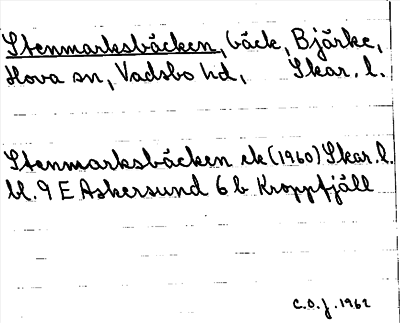 Stenmarksbäcken, bäck, Bjärke,
Hova sn, Vadsbo hd, Skar. l.
Stenmarksbäcken ek (1960) Skar. l.
bl. 9 E Askersund 6 b Kroppfjäll
C.O.J. 1962